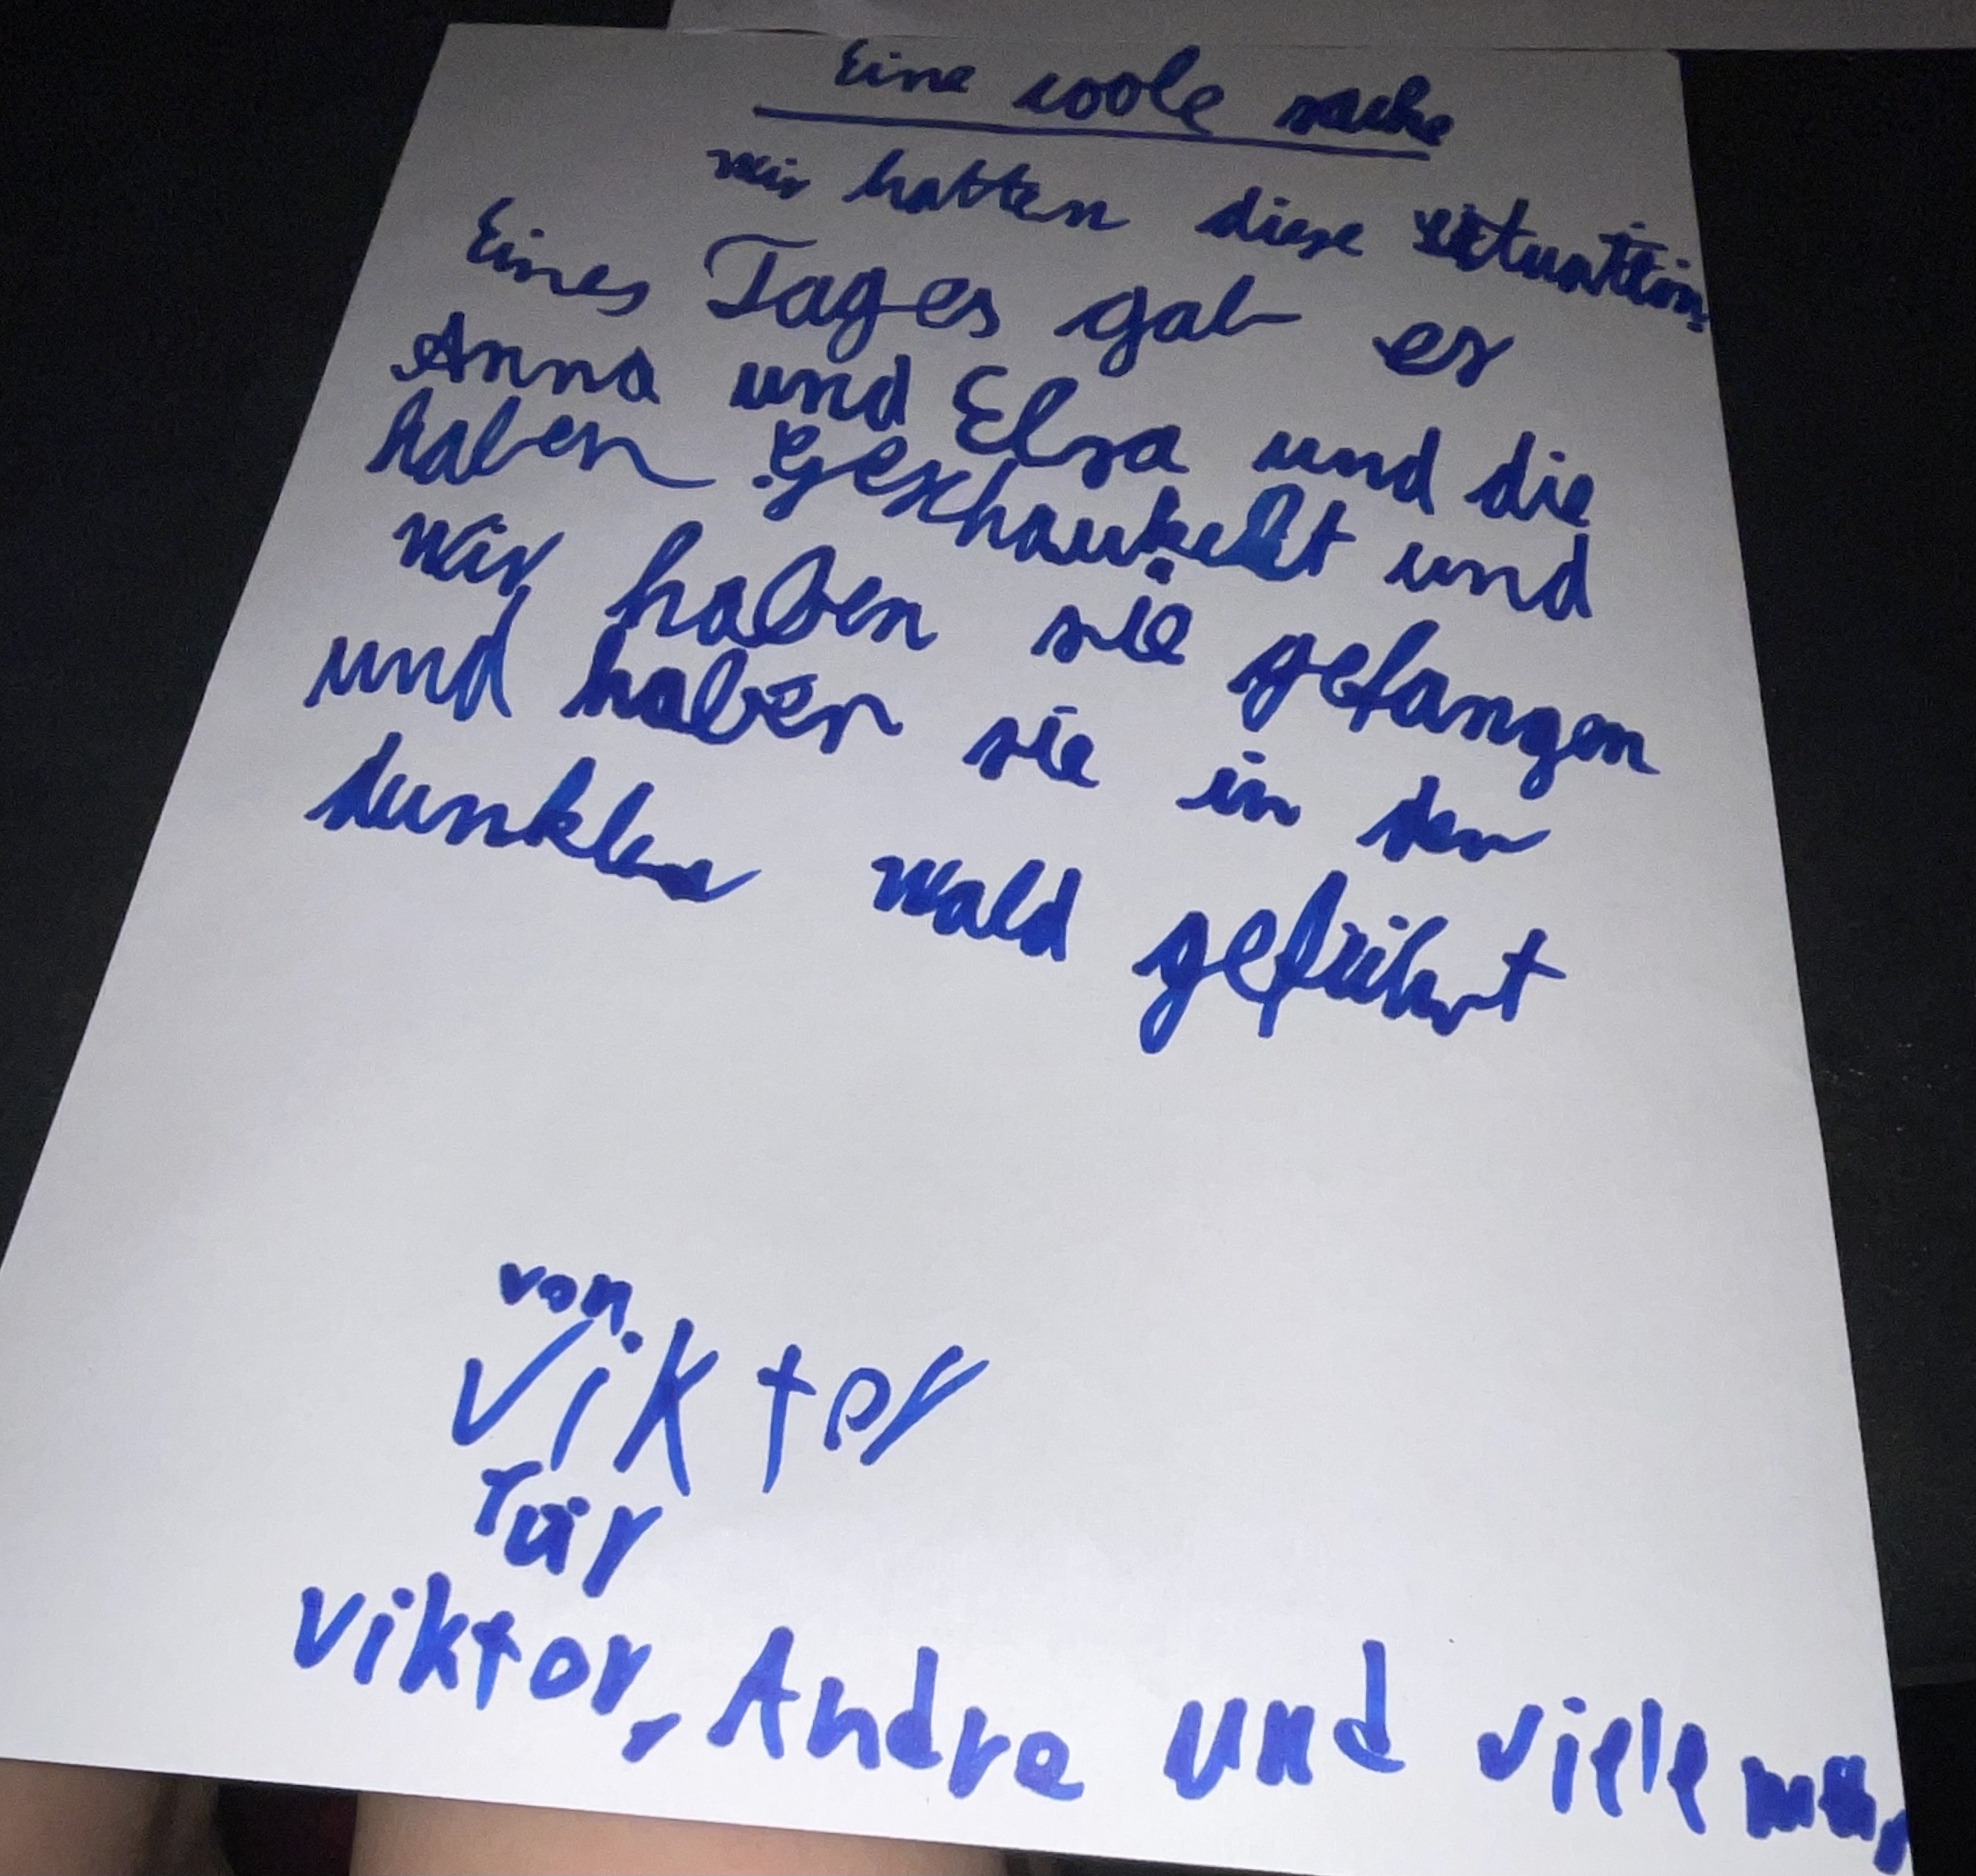 Eine coole sache
wir hatten diese situattion
Eines Tages gab es
Anna und Elsa und die
haben geschaukelt und
wir haben sie gefangen
und haben sie in den
dunklen wald geführt
von
Viktor
für
Viktor, Andre und viele